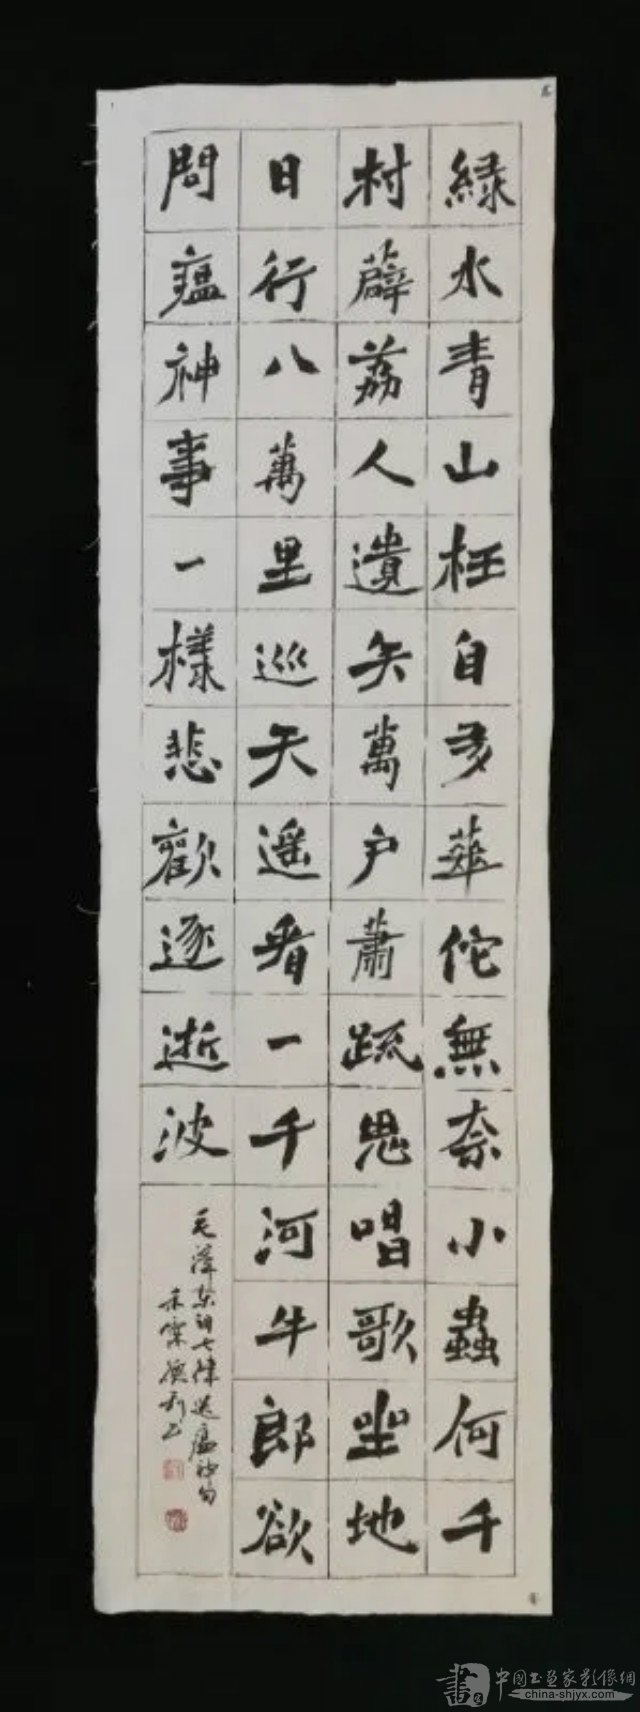 緑水青山枉自多華佗無奈小蟲何千
村薜荔人遺矢萬户蕭疏鬼唱歌坐地
日行八萬里巡天遥看一千河牛郎欲
問瘟神事一樣悲歡逐逝波
毛澤東詩七律送瘟神句
書
中国书画家影像網
china-shjyx.com